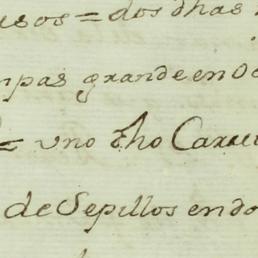 usos = dos dhas
npas grande en O
= uno dho Caxu
de Sepillos en do